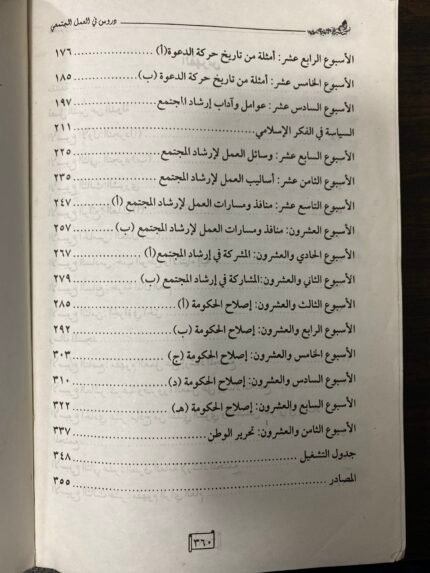 دروس في العمل المجتمعي
الأسبوع الرابع عشر: أمثلة من تاريخ حركة الدعوة(أ) ............... ١٧٦
الأسبوع الخامس عشر: أمثلة من تاريخ حركة الدعوة (ب) ............ ١٨٥
الأسبوع السادس عشر: عوامل وآداب إرشاد المجتمع ............... ١٩٧
السياسة في الفكر الإسلامي ............... ٢١١
الأسبوع السابع عشر: وسائل العمل لإرشاد المجتمع ............... ٢٢٥
الأسبوع الثامن عشر: أساليب العمل لإرشاد المجتمع ............... ٢٣٥
الأسبوع التاسع عشر: منافذ ومسارات العمل لإرشاد المجتمع (أ) .......... ٢٤٧
الأسبوع العشرون: منافذ ومسارات العمل لإرشاد المجتمع (ب) .......... ٢٥٧
الأسبوع الحادي والعشرون: المشركة في إرشاد المجتمع(أ) ............... ٢٦٧
الأسبوع الثاني والعشرون:المشاركة في إرشاد المجتمع (ب) ............... ٢٧٩
الأسبوع الثالث والعشرون: إصلاح الحكومة (أ) ............... ٢٨٥
الأسبوع الرابع والعشرون: إصلاح الحكومة (ب) ............... ٢٩٢
الأسبوع الخامس والعشرون: إصلاح الحكومة (ج) ............... ٣٠٣
الأسبوع السادس والعشرون: إصلاح الحكومة (د) ............... ٣١٠
الأسبوع السابع والعشرون: إصلاح الحكومة (هـ) ............... ٣٢٢
الأسبوع الثامن والعشرون: تحرير الوطن ............... ٣٣٧
جدول التشغيل ............... ٣٤٨
المصادر ............... ٣٥٥
٣٦٠